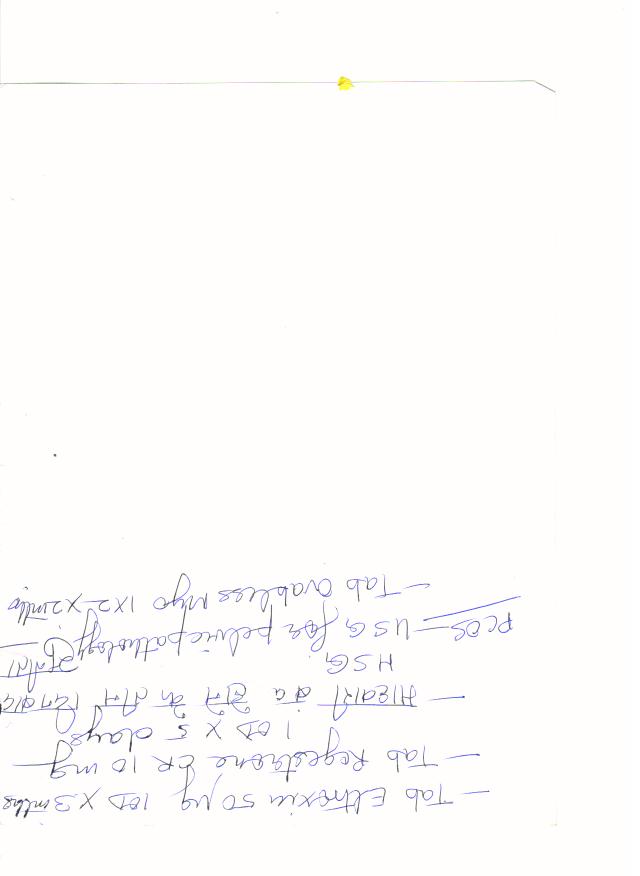 — Tab Eltroxin 50 µg 1OD x 3 mths
— Tab Regestrone CR 10 mg
1 OD x 5 days
— माहवारी बंद होने के तीन दिन बाद
HSG
PCOS — USG for pelvic pathology
— Tab Ovabless Myo 1x2 x 2 mths